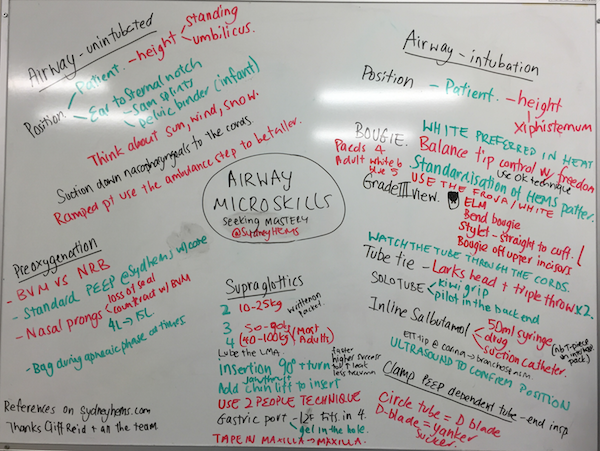 Airway - unintubated
Position
Patient - height
standing
umbilicus.
Ear to sternal notch
Sam splints
pelvic binder (infant)
Think about sun, wind, snow.
Suction down nasopharyngeals to the cords.
Ramped pt use the ambulance step to be taller.
Preoxygenation
- BVM VS NRB
- Standard PEEP @ Sydhems w/ care
- Nasal prongs
loss of seal
counteract w/ BVM
4L → 15L
- Bag during apnoeic phase at times
References on sydneyhems.com
Thanks Cliff Reid + all the team
AIRWAY
MICROSKILLS
SEEKING MASTERY
@SydneyHEMS
Supraglottics
2 10-25kg
written on packet.
3 30-60kg
4 (40-100kg) (Most Adults)
Lube the LMA.
Insertion 90° + turn
faster
higher success
less trauma
Jaw thrust
Add chin lift to insert
USE 2 PEOPLE TECHNIQUE
Gastric port - 12F fits in 4.
gel in the hole.
TAPE IN MAXILLA → MAXILLA.
Airway - intubation
Position - Patient - height
Xiphisternum
BOUGIE.
Paeds 4
Adult white 6
blue 5
WHITE PREFERRED IN HEAT
Balance tip control w/ freedom
use OK technique
Standardisation of HEMS patter.
Grade III view.
USE THE FROVA / WHITE
ELM
Bend bougie
Stylet - straight to cuff.
Bougie off upper incisors
WATCH THE TUBE THROUGH THE CORDS.
Tube tie - Larks head + triple throw x2.
SOLO TUBE
kiwi grip
pilot in the back end
Inline Salbutamol
50ml syringe
drug
suction catheter.
(nb T-piece in interhosp pack)
ETT tip @ carina → bronchospasm.
ULTRASOUND TO CONFIRM POSITION
Clamp PEEP dependent tube - end insp.
Circle tube = D blade
D-blade = yanker
sucker.